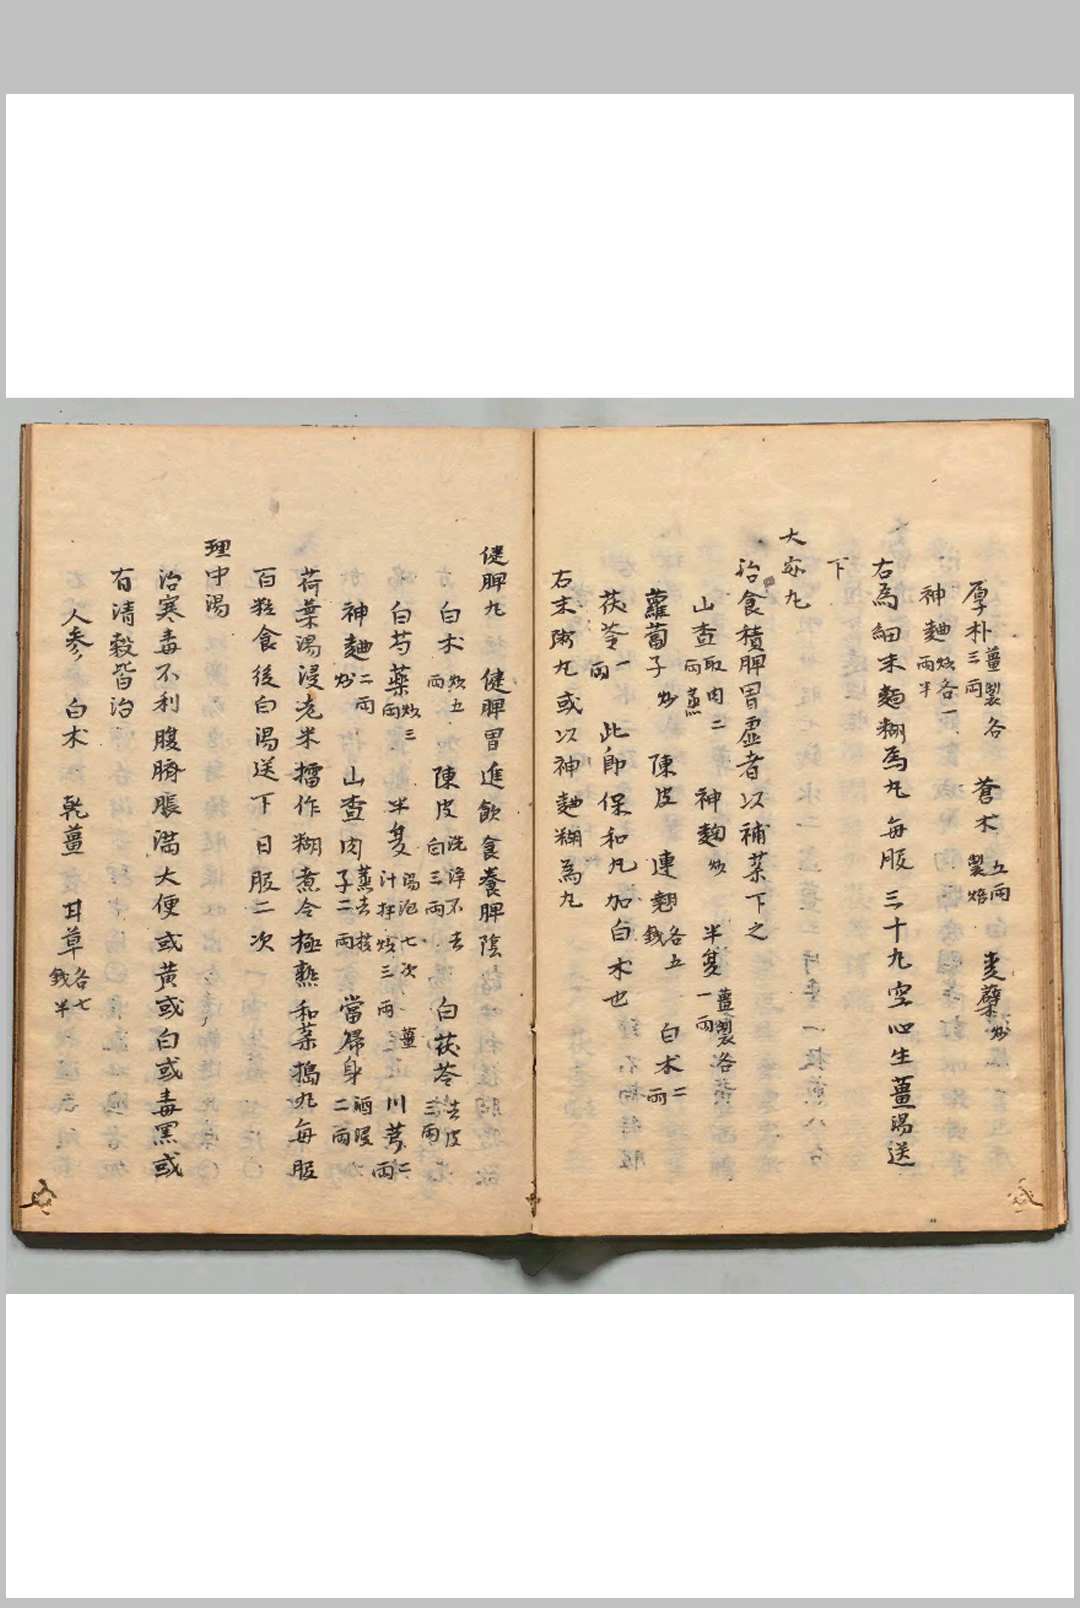 厚朴 薑製各三兩 蒼术 五兩製焙 麦蘗 炒
神麯 炒各一兩半
右為細末麵糊為丸每服三十九空心生薑湯送
下
大安丸
治食積脾胃虛者以補菜下之
山查 取肉二兩蒸 神麴 炒 半夏 薑製各一兩
蘿蔔子 炒 陳皮 連翹 各五錢 白术 二兩
茯苓 一兩 此即保和丸加白术也
右末粥丸或以神麯糊為丸
健脾丸 健脾胃進飲食養脾陰
白术 炒五兩 陳皮 洗淨不去白三兩 白茯苓 去皮三兩
白芍藥 炒三兩 半夏 湯泡七次薑汁拌炒三兩 川芎 二兩
神麯 二兩炒 山查肉 蒸去核子二兩 當歸身 酒浸二兩
荷葉湯浸老米擂作糊煮令極熟和菜搗丸每服
百粒食後白湯送下日服二次
理中湯
治寒毒不利腹臍脹滿大便或黃或白或毒黑或
有清穀皆治
人參 白术 乾薑 甘草 各七錢半